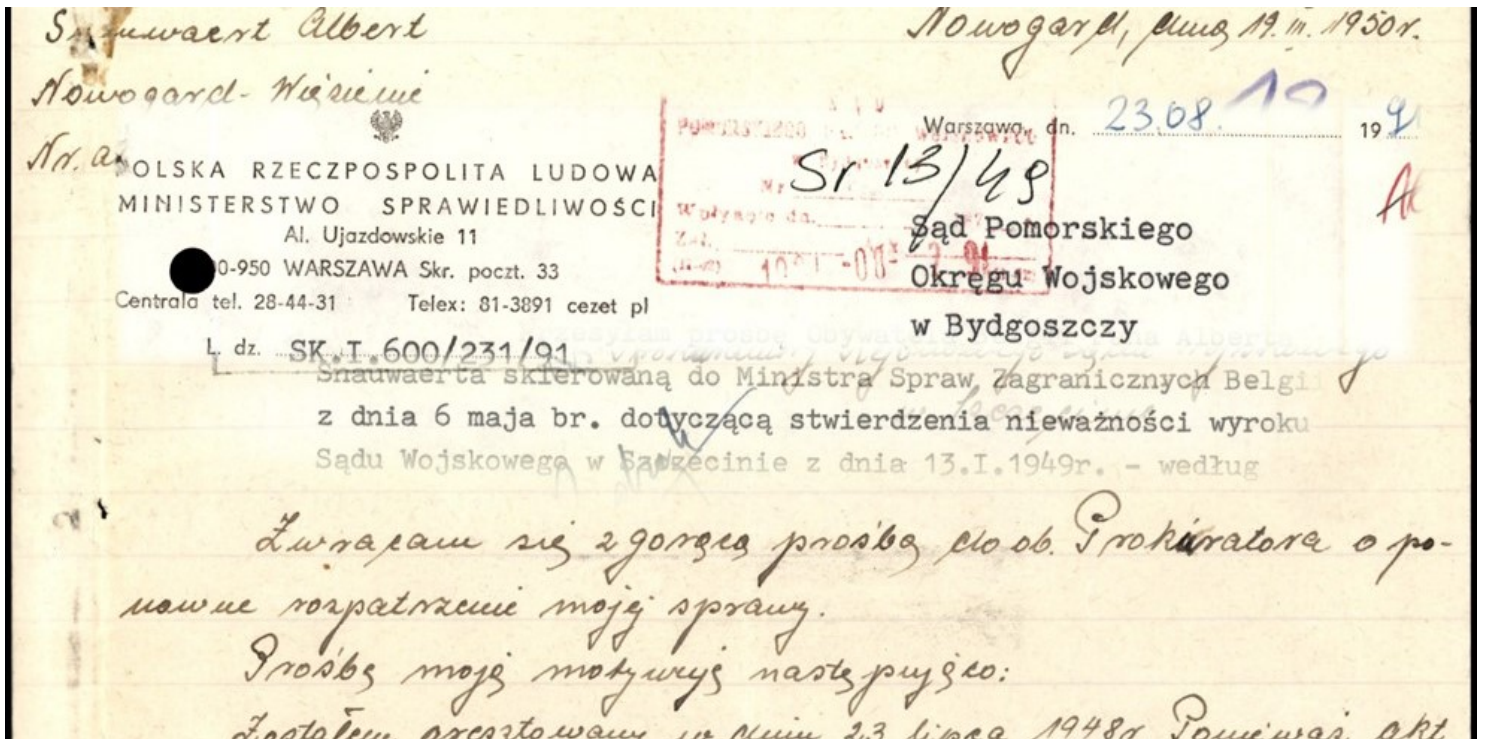 Albert
Nowogard, dnia 19. III. 1950r.
Nowogard - Więzienie
Warszawa, dn. 23.08. 19 9
Nr. a
POLSKA RZECZPOSPOLITA LUDOWA
MINISTERSTWO SPRAWIEDLIWOŚCI
Al. Ujazdowskie 11
0-950 WARSZAWA Skr. poczt. 33
Centrala tel. 28-44-31 Telex: 81-3891 cezet pl
L. dz. SK.I.600/231/91
POMORSKIEGO
Nr
Wpłynęło dn.
Zał.
Sr 13/49
Sąd Pomorskiego
Okręgu Wojskowego
w Bydgoszczy
Przesyłam prośbę Obywatela Alberta
Snauwaerta skierowaną do Ministra Spraw Zagranicznych Belgii
z dnia 6 maja br. dotyczącą stwierdzenia nieważności wyroku
Sądu Wojskowego w Szczecinie z dnia 13.I.1949r. - według
Zwracam się z gorącą prośbą do ob. Prokuratora o po-
nowne rozpatrzenie mojej sprawy.
Prośbę moją motywuję następująco:
Zostałem aresztowany w dniu 23 lipca 1948r. Ponieważ akt